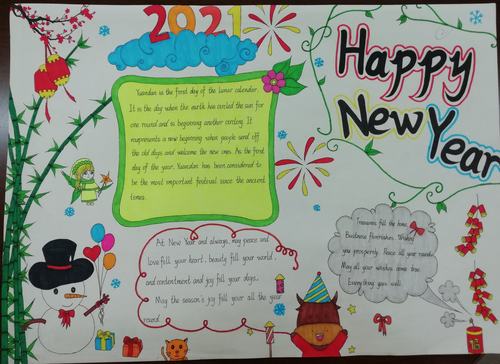 2021
Happy
New Year
Yuandan is the first day of the lunar calendar.
It is the day when the earth has circled the sun for
one round and is beginning another circling. It
represents a new beginning when people send off
the old days and welcome the new ones. As the first
day of the year, Yuandan has been considered to
be the most important festival since the ancient
times.
At New Year and always, may peace and
love fill your heart, beauty fill your world,
and contentment and joy fill your days.
May the season's joy fill your all the year
round.
Treasures fill the home
Business flourishes. Wishing
you prosperity. Peace all year round.
May all your wishes come true
Everything goes well.